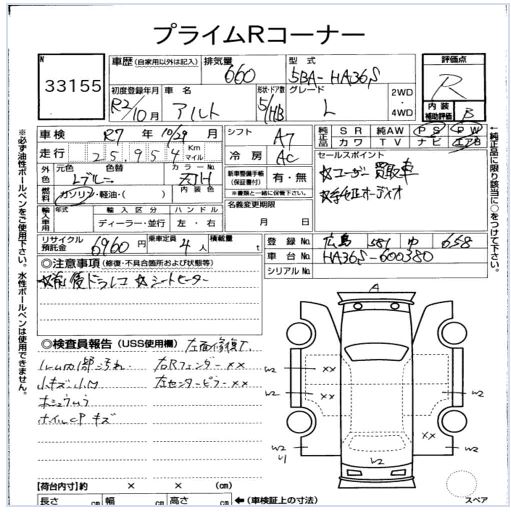 プライムRコーナー
N
33155
車歴 (自家用以外は記入)
排気量
660
型式
5BA-HA36S
評価点
R
初度登録年月
R2/10月
車名
アルト
形状・ドア数
5/HB
グレード
L
2WD
4WD
内装
補助評価
B
車検 R7年 10/29月
シフト
A7
純正品
SR 純AW PS PW
カワ TV ナビ エアB
走行 25,954 Km マイル
冷房
AC
セールスポイント
☆ユーザー買取車
外装色
元色
色替
内装色
新車整備手帳
(保証書付)
有・無
※書類と一緒に保管して下さい。
燃料
ガソリン・軽油・( )
名義変更期限
月 日
輸入車用
年式
輸入区分
ハンドル
ディーラー・並行
左・右
リサイクル預託金
6960円
乗車定員
4人
積載量
t
登録No
広島 581 ゆ 658
車台No
HA36S-600380
シリアルNo
◎注意事項 (修復・不具合箇所および状態等)
☆シートヒーター
◎検査員報告 (USS使用欄)
左面修復了.
右Rフェンダー××
小キズ小凹
左センターピラー××
ホイルCPキズ
A
W2
××
W2
W2
××
W2
W2
U1
W2
W2
スペア
【荷台内寸】 × × (cm)
長さ cm 幅 cm 高さ cm
← (車検証上の寸法)
※必ず油性ボールペンをご使用下さい。水性ボールペンは使用できません。
←純正品に限り該当に○をつけて下さい。